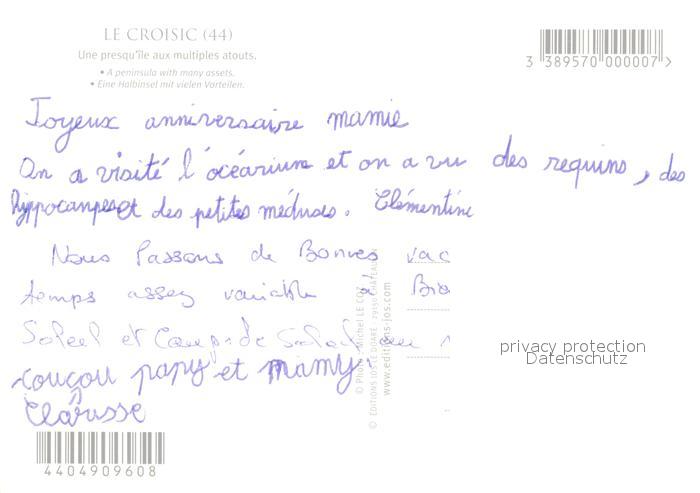 LE CROISIC (44)
Une presqu'île aux multiples atouts.
• A peninsula with many assets.
• Eine Halbinsel mit vielen Vorteilen.
3 389570 000007 >
Joyeux anniversaire mamie
On a visité l'océarium et on a vu des requins, des
hyppocampes et des petites méduses. Clémentine
Nous Passons de Bonnes vac
temps assez variable à
Soleil et Coup de Soleil au
coucou papy et mamy.
Clarisse
© Photo: Michel LE CO
© ÉDITIONS JOS LE DOARÉ - 29150 CHÂTEAULIN
www.editions-jos.com
privacy protection
Datenschutz
4404909608